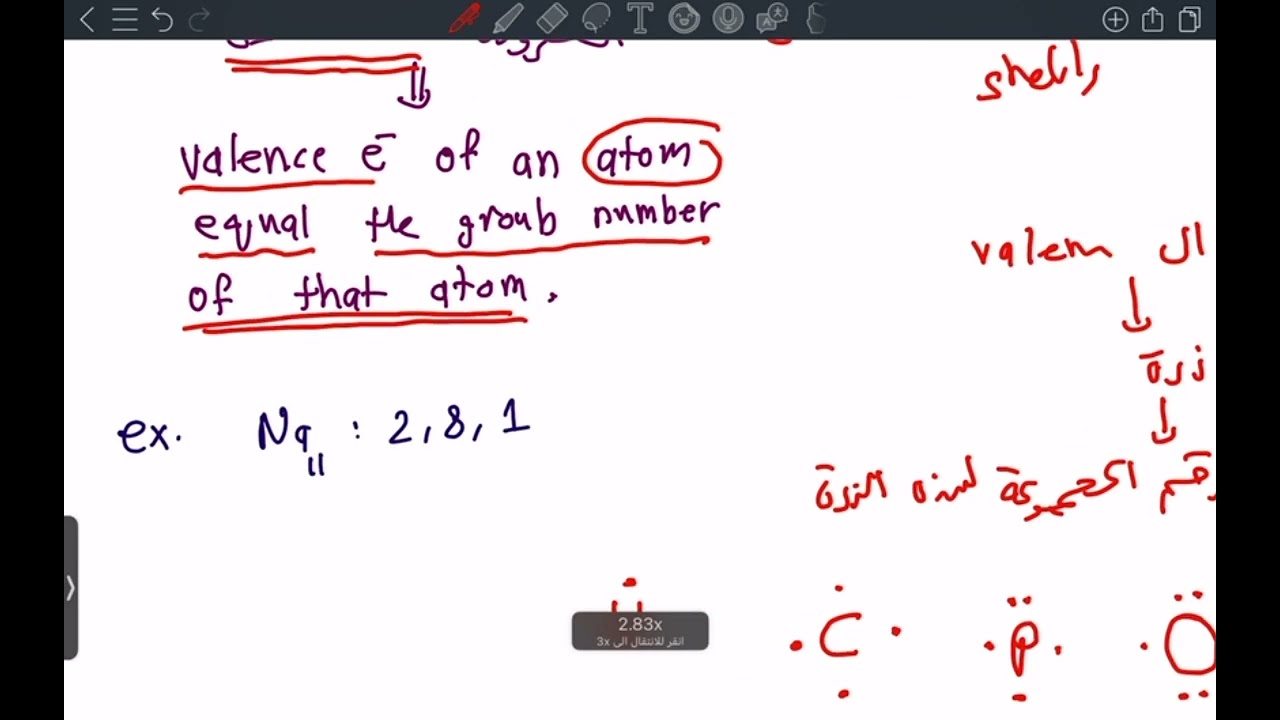 shells
valence e⁻ of an atom
equal the groub number
of that atom.
ال valem
ذرة
رقم المجموعة لهذه الذرة
ex. Na₁₁ : 2, 8, 1
2.83x
انقر للانتقال الى 3x
C P O